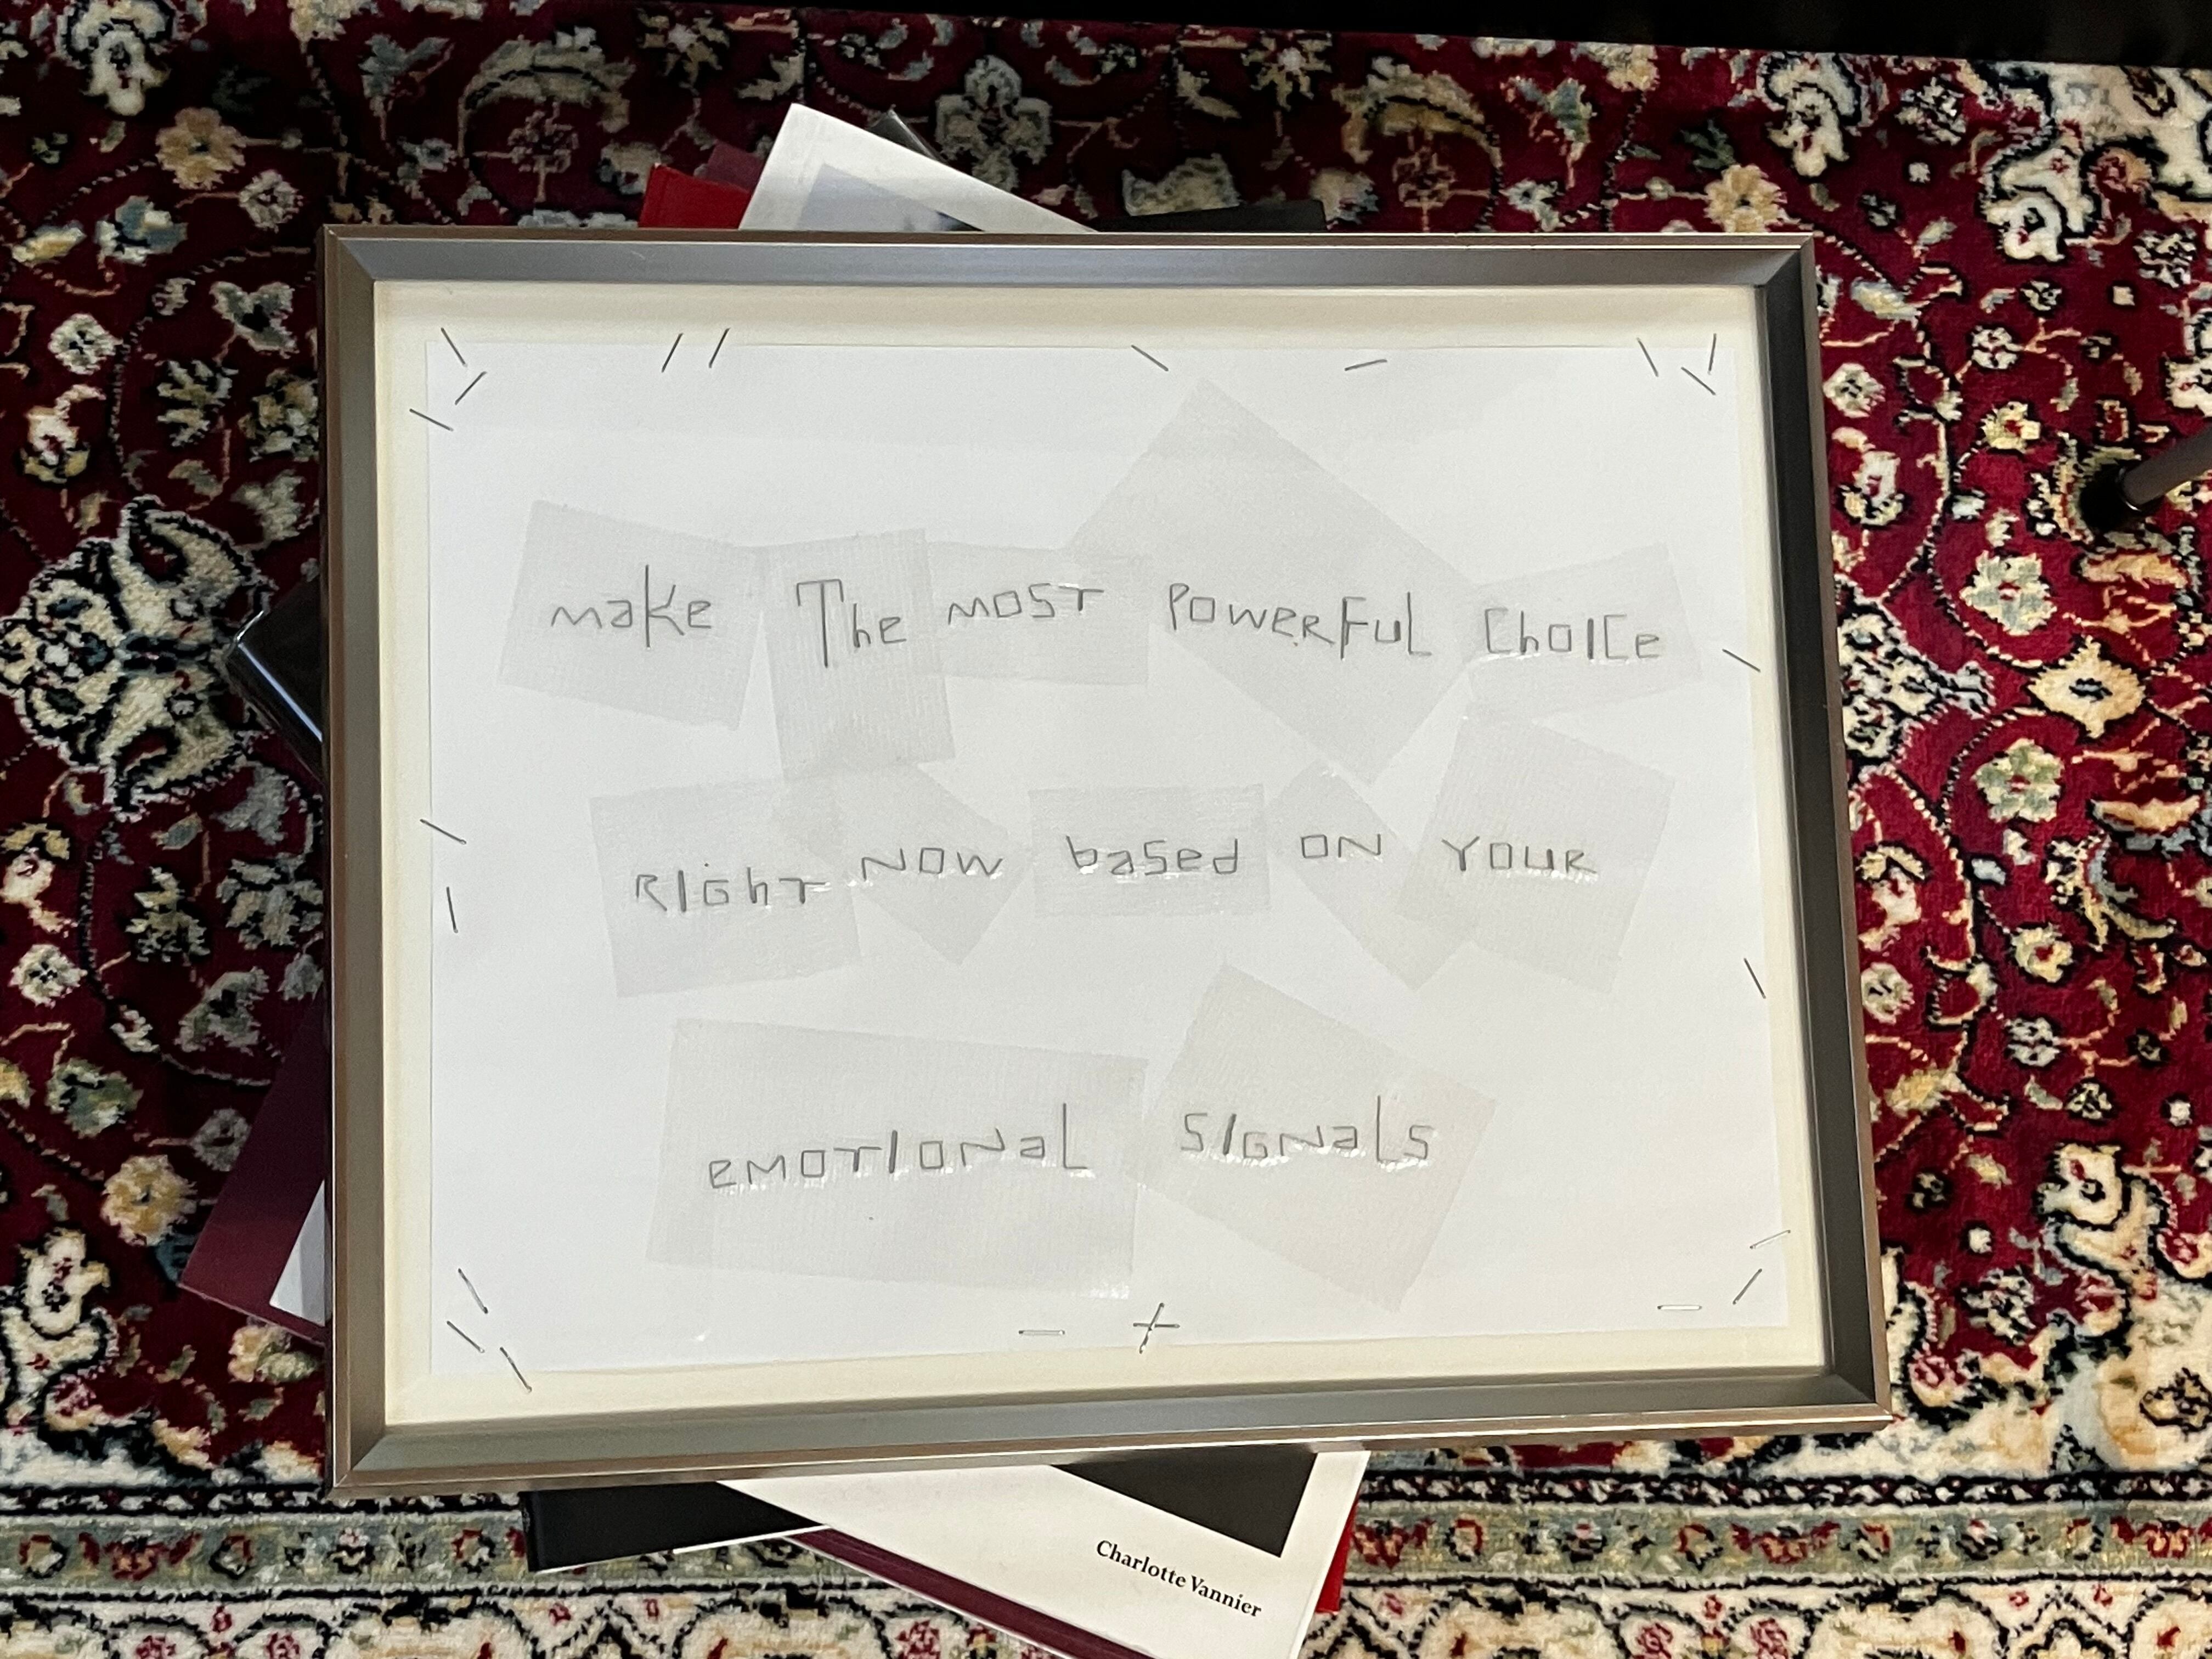 make The MOST POWERFUL ChOICe
RIGhT NOW based ON YOUR
eMOTIONaL SIGNaLS
Charlotte Vannier